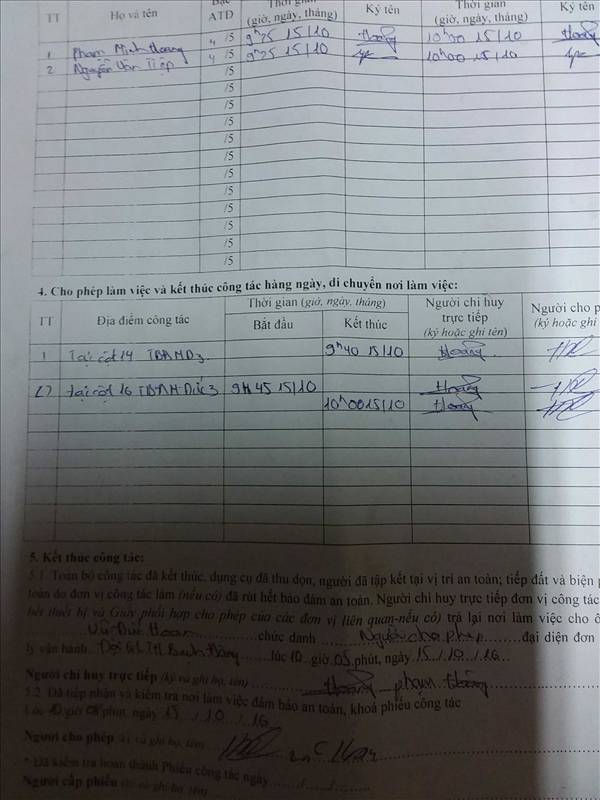 TT Họ và tên Bậc ATĐ Thời gian (giờ, ngày, tháng) Ký tên Thời gian (giờ, ngày, tháng) Ký tên
1 Phạm Minh Hoàng 4 /5 9h25 15/10 Hoàng 10h00 15/10 Hoàng
2 Nguyễn Văn Tiệp 4 /5 9h25 15/10 10h00 15/10
/5
/5
/5
/5
/5
/5
/5
/5
/5
/5
/5
/5
4. Cho phép làm việc và kết thúc công tác hàng ngày, di chuyển nơi làm việc:
TT Địa điểm công tác Thời gian (giờ, ngày, tháng) Người chỉ huy trực tiếp (ký hoặc ghi tên) Người cho p (ký hoặc ghi
Bắt đầu Kết thúc
1 Tại cột 14 9h40 15/10 Hoàng
2 tại cột 16 9h45 15/10 Hoàng
10h00 15/10 Hoàng
5. Kết thúc công tác:
5.1. Toàn bộ công tác đã kết thúc, dụng cụ đã thu dọn, người đã tập kết tại vị trí an toàn; tiếp đất và biện
toàn do đơn vị công tác làm (nếu có) đã rút hết bảo đảm an toàn. Người chỉ huy trực tiếp đơn vị công tác
hết thiết bị và Giấy phối hợp cho phép của các đơn vị liên quan-nếu có) trả lại nơi làm việc cho ô
chức danh Người cho phép đại diện đơn
lý vận hành lúc 10 giờ 05 phút, ngày 15/10/16
Người chỉ huy trực tiếp (ký và ghi họ, tên) Hoàng phạm Hoàng
5.2. Đã tiếp nhận và kiểm tra nơi làm việc đảm bảo an toàn, khoá phiếu công tác
Lúc 10 giờ 08 phút, ngày 15/10/16
Người cho phép (ký và ghi họ, tên)
* Đã kiểm tra hoàn thành Phiếu công tác ngày
Người cấp phiếu (ký và ghi họ, tên)